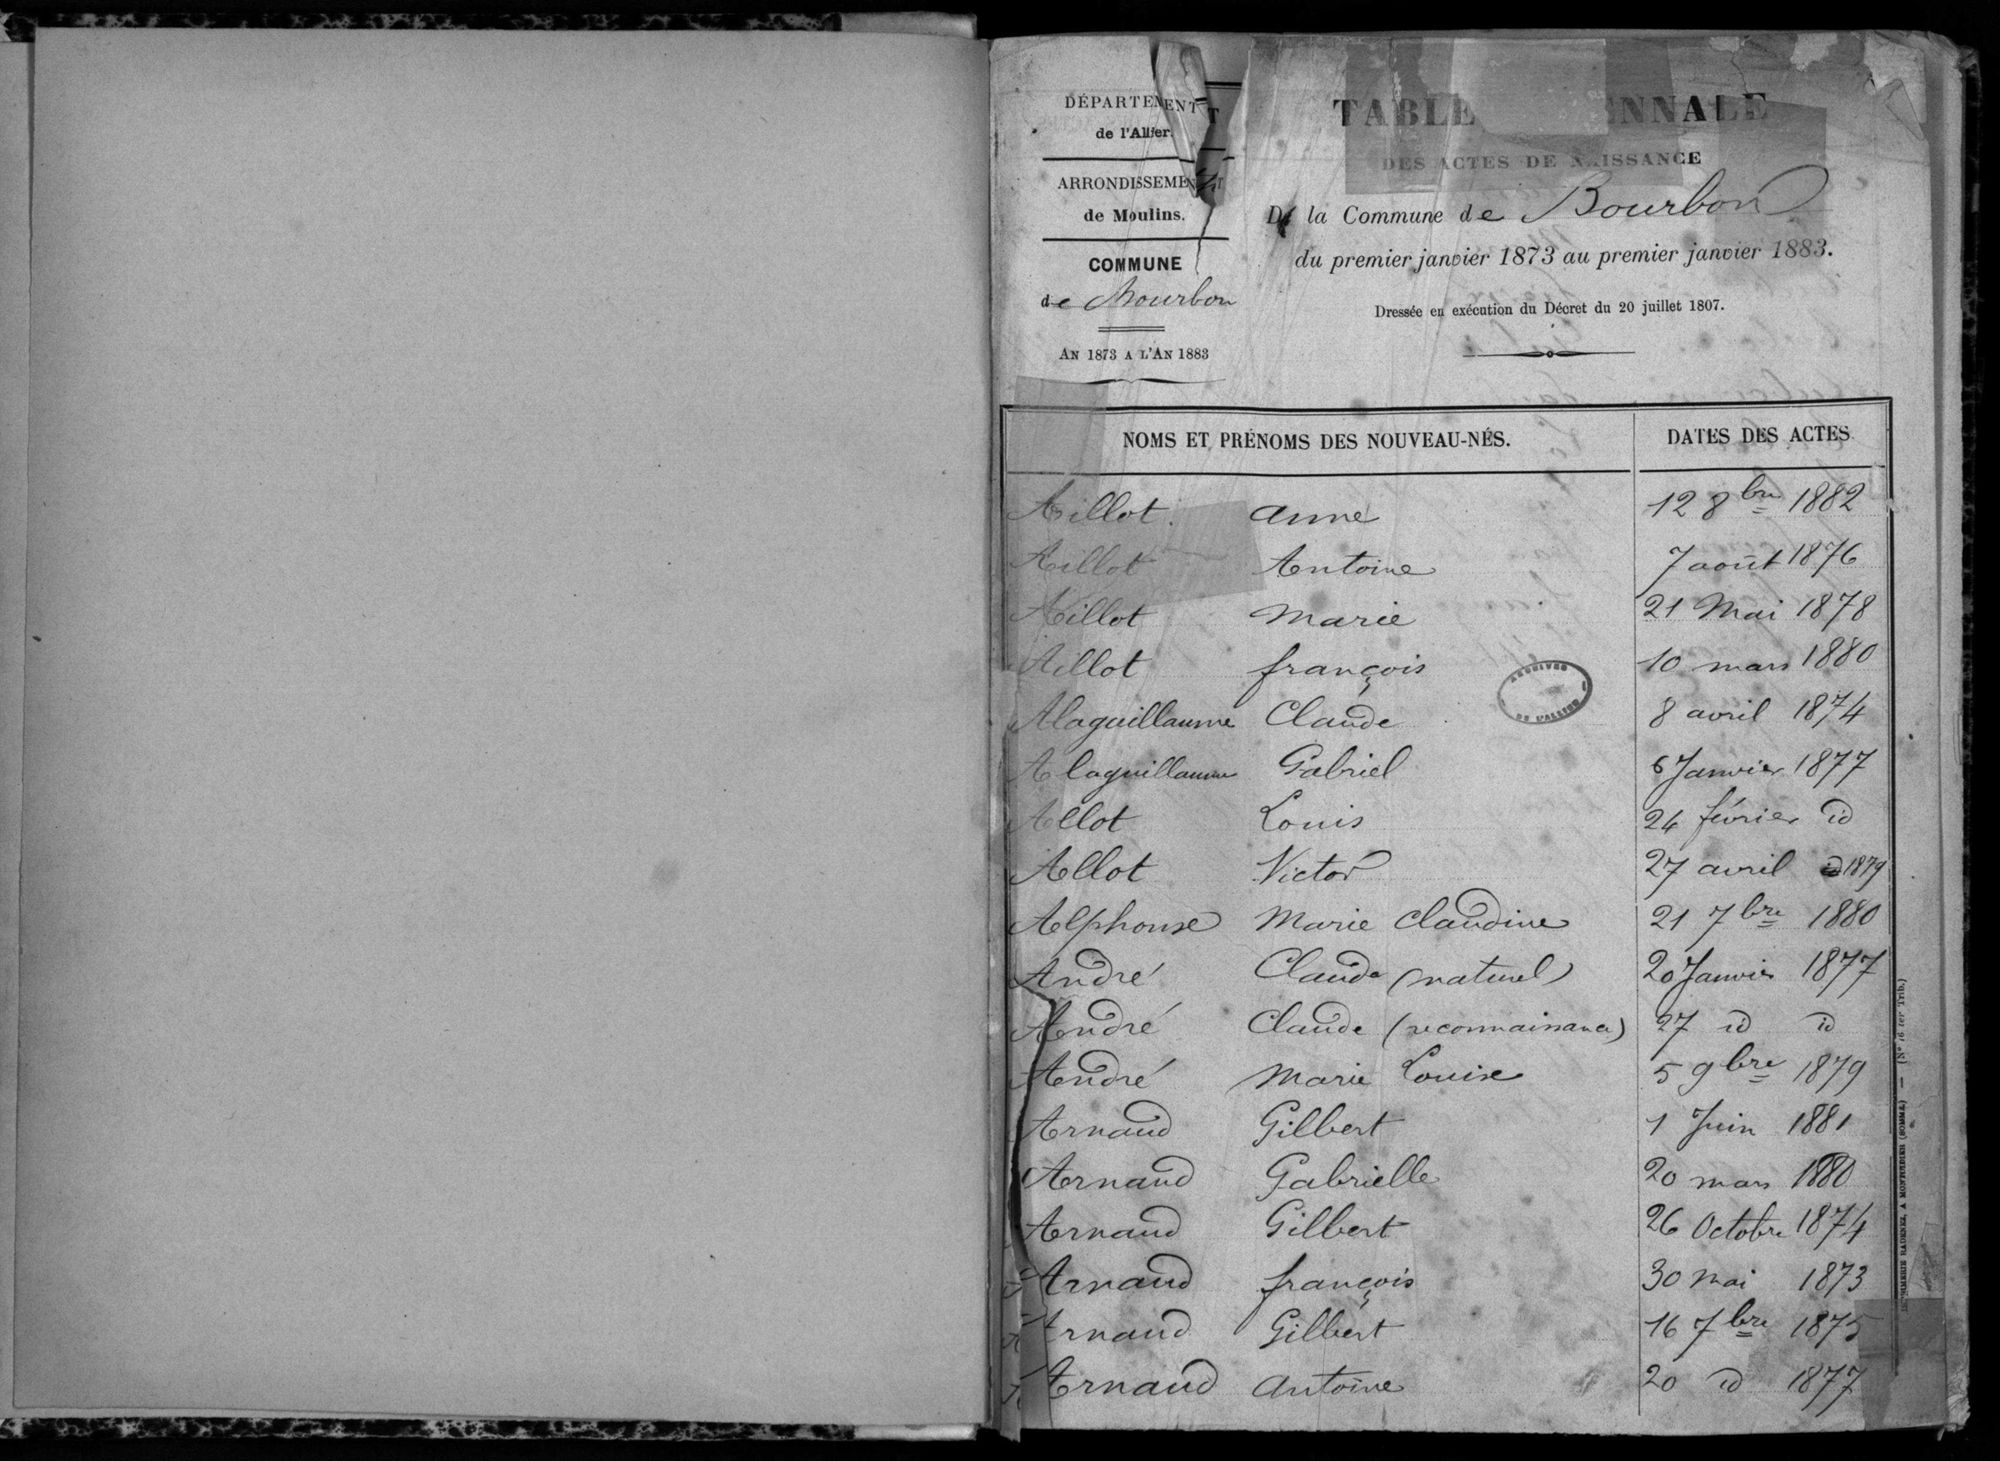 DÉPARTEMENT
de l'Allier.
ARRONDISSEMENT
de Moulins.
COMMUNE
de Bourbon
AN 1873 A L'AN 1883
TABLE ENNALE
DES ACTES DE NAISSANCE
De la Commune de Bourbon
du premier janvier 1873 au premier janvier 1883.
Dressée en exécution du Décret du 20 juillet 1807.
NOMS ET PRÉNOMS DES NOUVEAU-NÉS. DATES DES ACTES
Aillot. anne 12 8bre 1882
Aillot Antoine 7 août 1876
Aillot Marie 21 Mai 1878
Aillot françois 10 mars 1880
Alaguillaume Claude 8 avril 1874
Alaguillaume Gabriel 6 Janvier 1877
Allot Louis 24 février id
Allot Victor 27 avril 1879
Alphonse Marie Claudine 21 7bre 1880
André Claude (naturel) 20 Janvier 1877
André Claude (reconnaissance) 27 id id
André Marie Louise 5 9bre 1879
Arnaud Gilbert 1 Juin 1881
Arnaud Gabrielle 20 mars 1880
Arnaud Gilbert 26 Octobre 1874
Arnaud françois 30 mai 1873
Arnaud Gilbert 16 7bre 1875
Arnaud Antoine 20 id 1877
ARCHIVES
DE L'ALLIER
IMPRIMERIE RADENEZ, A MONTDIDIER (SOMME.) — (N° 16 ter Trib.)